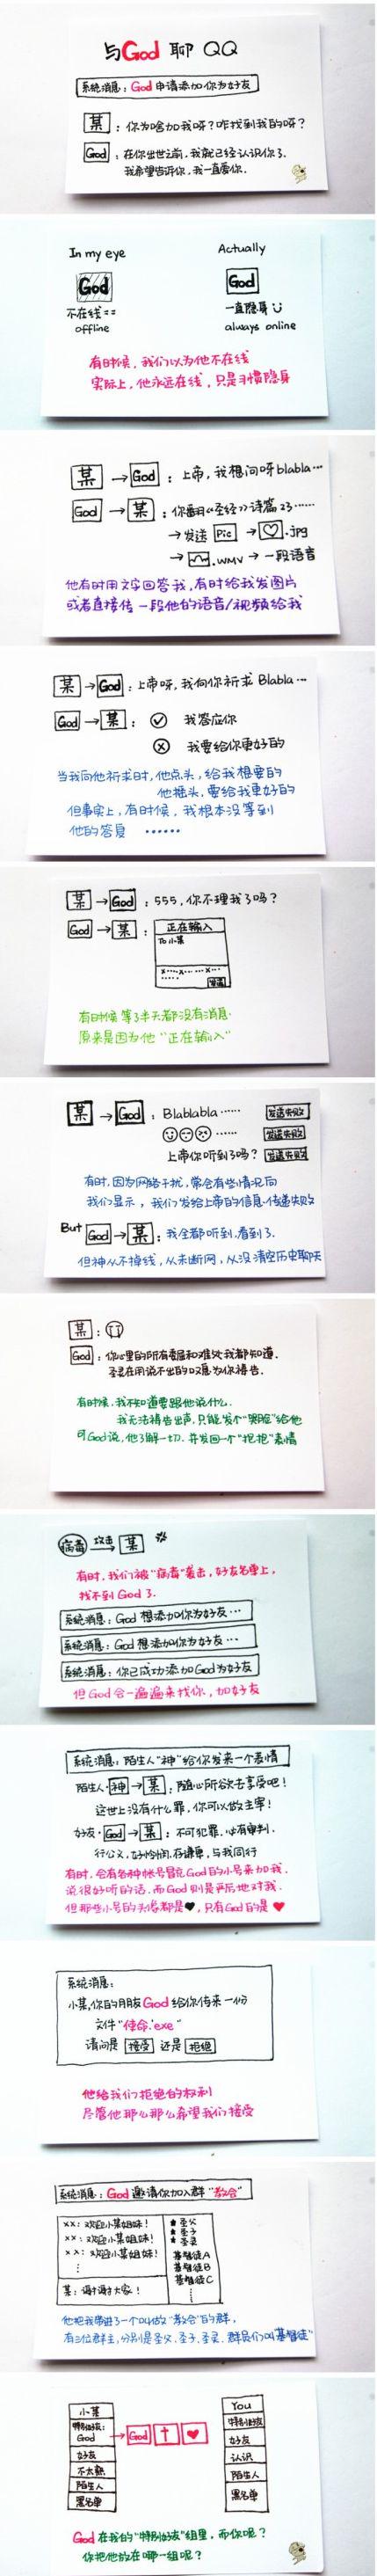 与God 聊 QQ
系统消息：God 申请添加你为好友
某：你为啥加我呀？咋找到我的呀？
God：在你出世之前，我就已经认识你了，
我希望告诉你，我一直爱你.
In my eye
Actually
God
God
不在线 ==
一直隐身
offline
always online
有时候，我们以为他不在线
实际上，他永远在线，只是习惯隐身
某→God：上帝，我想问呀blabla…
God→某：你翻《圣经》诗篇23……
→发送 Pic → ♡.jpg
→ .wmv → 一段语音
他有时用文字回答我，有时给我发图片
或者直接传一段他的语音/视频给我
某→God：上帝呀，我向你祈求 Blabla…
God→某： 我答应你
我要给你更好的
当我向他祈求时，他点头，给我想要的
他摇头，要给我更好的
但事实上，有时候，我根本没等到
他的答复 ……
某→God：555，你不理我了吗？
God→某：
正在输入
To 小某
发送
有时候等了半天都没有消息.
原来是因为他“正在输入”
某→God：Blablabla…… 发送失败
…… 发送失败
上帝你听到了吗？ 发送失败
有时，因为网络干扰，常会有些情况向
我们显示，我们发给上帝的信息传递失败
But God→某：我全都听到，看到了.
但神从不掉线，从未断网，从没清空历史聊天
某：
God：你心里的所有委屈和难处我都知道.
圣灵在用说不出的叹息为你祷告.
有时候，我不知道要跟他说什么.
我无法祷告出声，只能发个“哭脸”给他
可God说，他了解一切，并发回一个“抱抱”表情
病毒 攻击→ 某
有时，我们被“病毒”袭击，好友名单上，
找不到God了.
系统消息：God 想添加你为好友…
系统消息：God 想添加你为好友…
系统消息：你已成功添加God为好友
但God会一遍遍来找你，加好友
系统消息：陌生人“神”给你发来一个表情
陌生人·神→某：随心所欲去享受吧！
这世上没有什么罪，你可以做主宰！
好友·God→某：不可犯罪，必有审判.
行公义，好怜悯，存谦卑，与我同行
有时，会有各种帐号冒充God的小号来加我.
说很好听的话，而God则是严厉地对我.
但那些小号的头像都是♥，只有God的是 ♥
系统消息：
小某，你的朋友God给你传来一份
文件“使命.exe”
请问是 接受 还是 拒绝
他给我们拒绝的权利
尽管他那么那么希望我们接受
系统消息：God 邀请你加入群“教会”
××：欢迎小某姐妹！
××：欢迎小某姐妹！
××：欢迎小某姐妹！
某：谢谢大家！
★圣父
★圣子
★圣灵
基督徒A
基督徒B
基督徒C
他把我带进了一个叫做“教会”的群，
有三位群主，分别是圣父、圣子、圣灵，群员们叫“基督徒”
小某
特别好友：
God
好友
不太熟
陌生人
黑名单
God
You
特别好友
好友
认识
陌生人
黑名单
God 在我的“特别好友”组里，而你呢？
你把他放在哪一组呢？